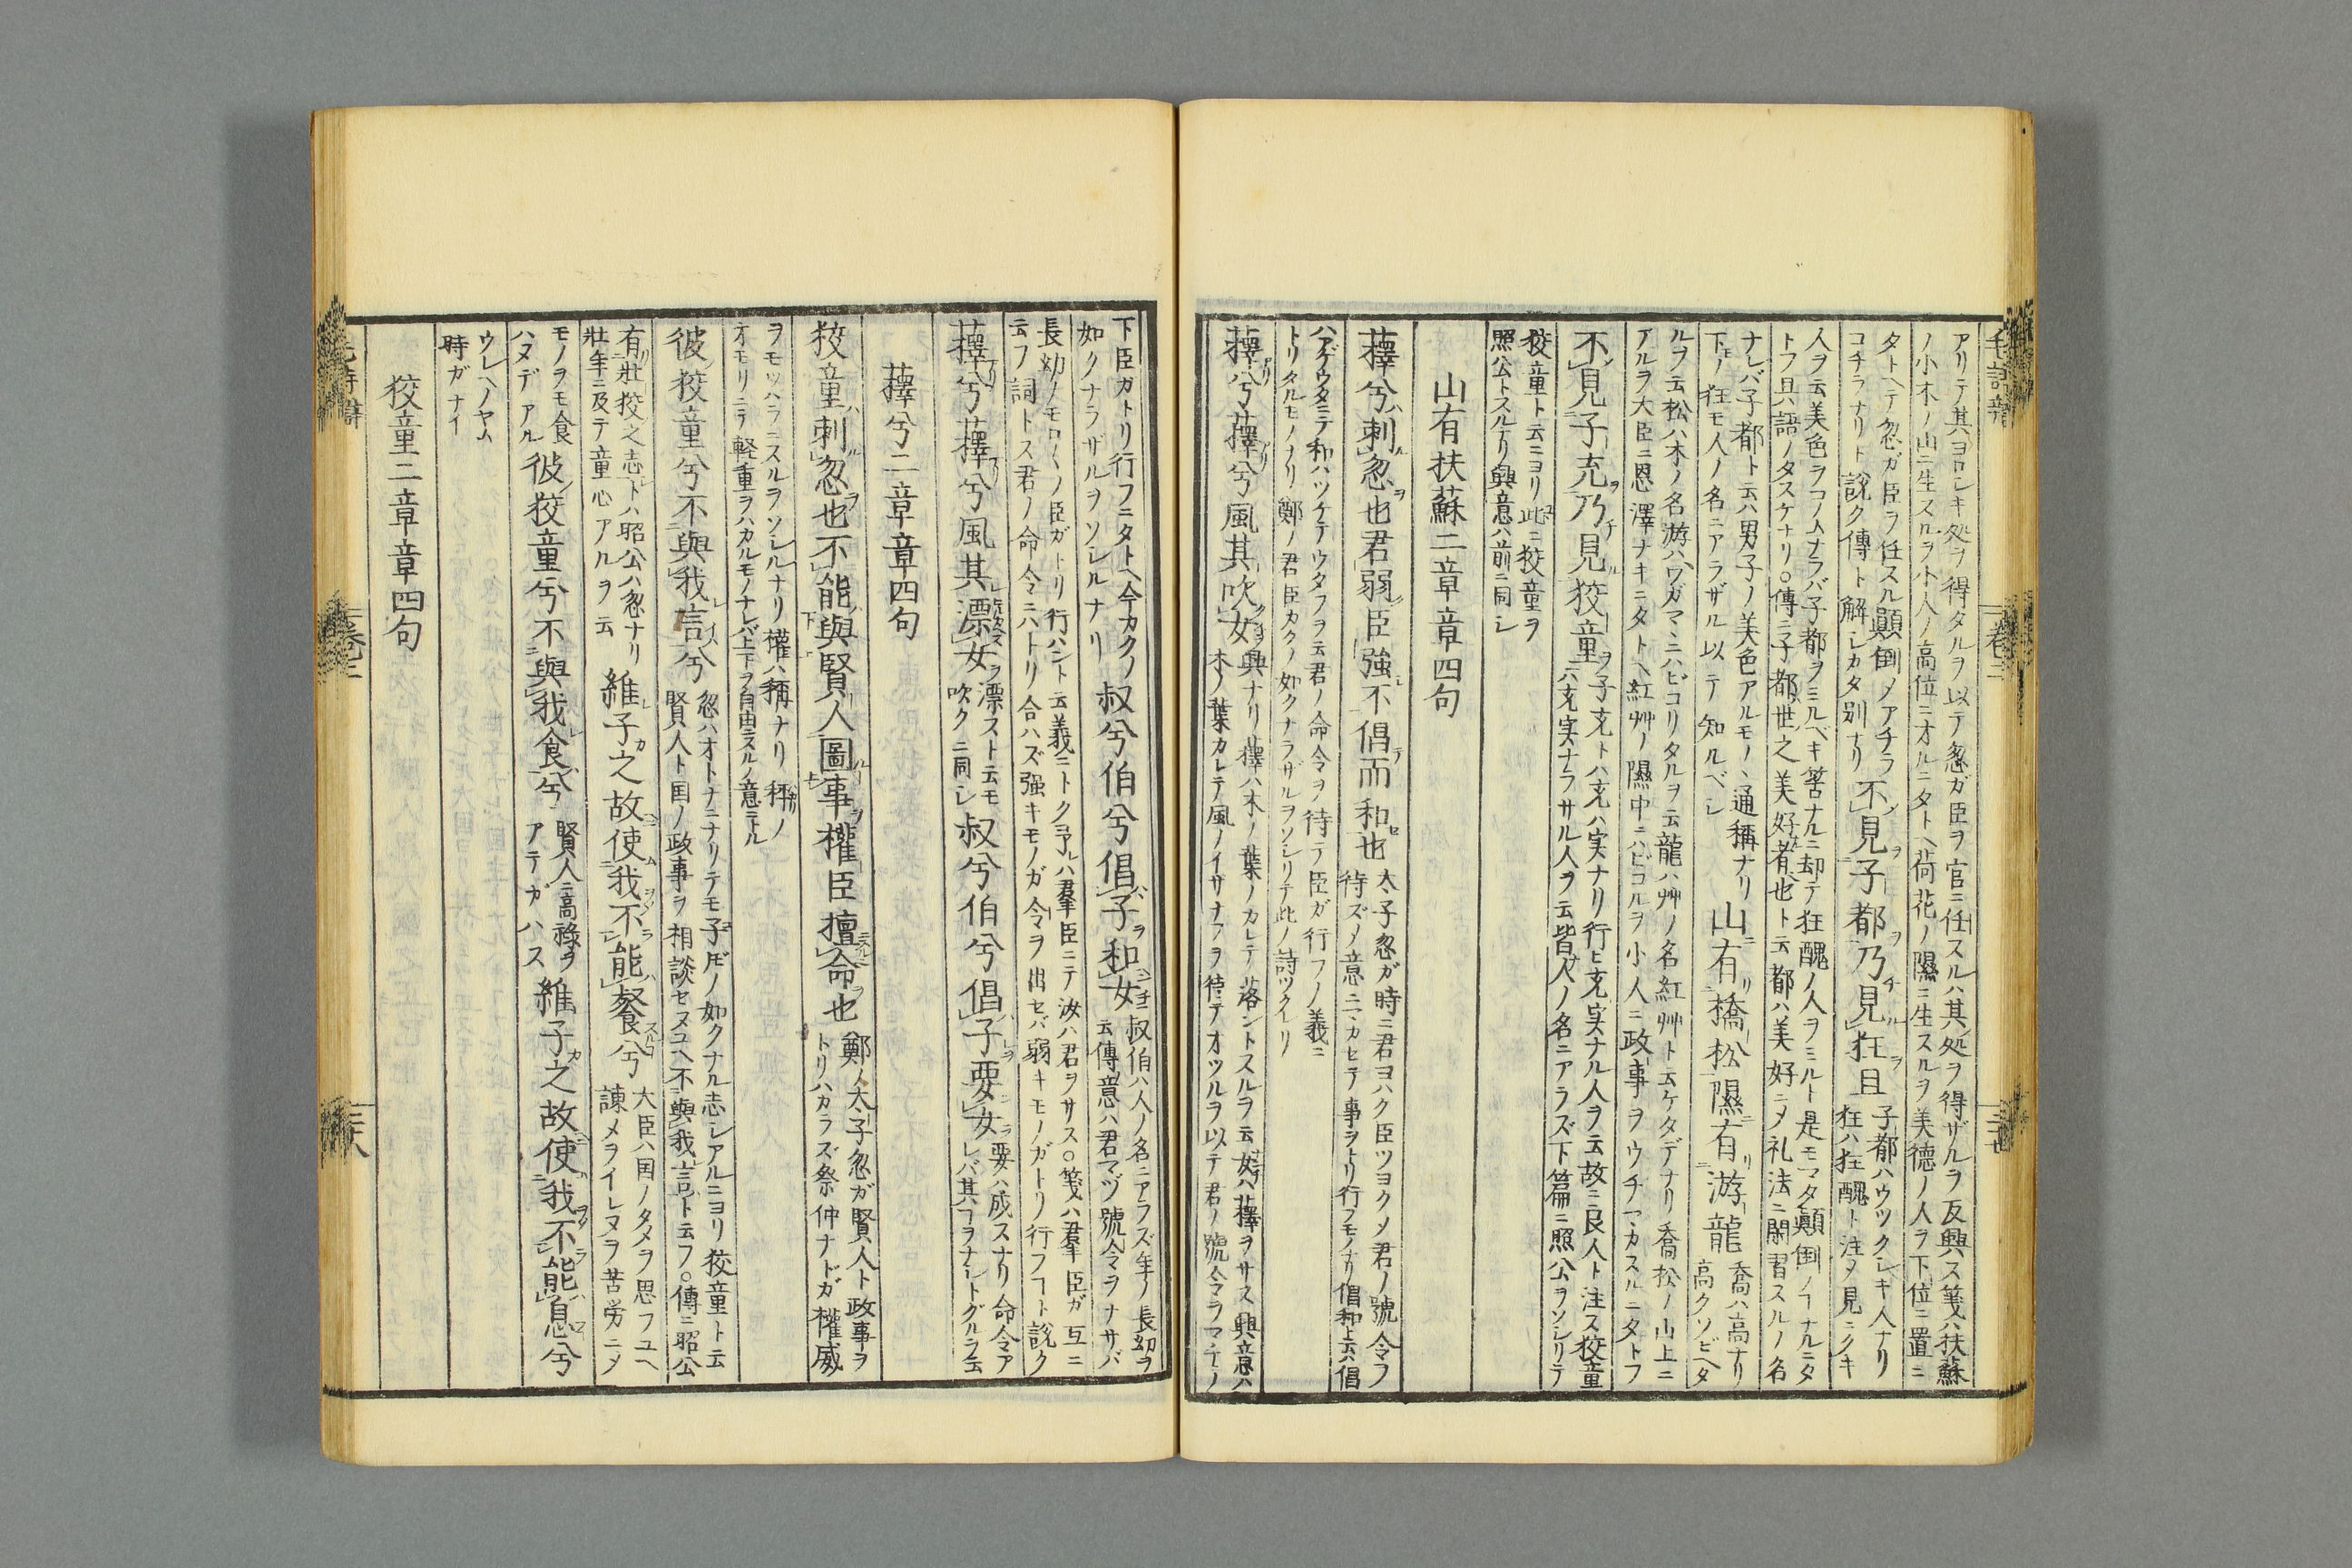 アリテ其ヨロシキ処ヲ得タルヲ以テ忽ガ臣ヲ官ニ任スルハ其処ヲ得ザルヲ反興ス箋ハ扶蘇
ノ小木ノ山ニ生スルヲ小人ノ高位ニオルニタトヘ荷花ノ隰ニ生スルヲ美徳ノ人ヲ下位ニ置ニ
タトヘテ忽ガ臣ヲ任スル顛倒メアチラ
コチラナリト説ク傳ト解シカタ別ナリ
不見子都乃見狂且
子都ハウツクシキ人ナリ
狂ハ狂醜ト注メ見ニクキ
人ヲ云美色ヲコノムナラバ子都ヲミルベキ筈ナルニ却テ狂醜ノ人ヲミルト是モマタ顛倒ノヿナルニタ
トフ且ハ語ノタスケナリ○傳ニ子都世之美好者也ト云都ハ美好ニメ礼法ニ閑習スルノ名
ナレバ子都ト云ハ男子ノ美色アルモノヽ通稱ナリ
下ノ狂モ人ノ名ニアラザル以テ知ルベシ
山有橋松隰有游龍
喬ハ高ナリ
高クソビヘタ
ルヲ云松ハ木ノ名游ハワガマヽニハビコリタルヲ云龍ハ艸ノ名紅艸ト云ケタデナリ喬松ノ山上ニ
アルヲ大臣ニ恩澤ナキニタトヘ紅艸ノ隰中ニハビコルヲ小人ニ政事ヲウチマカスルニタトフ
不見子充乃見狡童
子充トハ充ハ実ナリ行ヒ充実ナル人ヲ云故ニ良人ト注ス狡童
ハ充実ナラサル人ヲ云皆人ノ名ニアラズ下篇ニ照公ヲソシリテ
狡童ト云ニヨリ此ニ狡童ヲ
照公トスルナリ興意ハ前ニ同シ
山有扶蘇二章章四句
蘀兮刺忽也君弱臣強不倡而和也
太子忽ガ時ニ君ヨハク臣ツヨクメ君ノ號令フ
待ズメ意ニマカセテ事ヲトリ行フモノナリ倡和ト云ハ倡
ハアゲウタニテ和ハツケテウタフヲ云君ノ命令ヲ待テ臣ガ行フノ義ニ
トリタルモノナリ鄭ノ君臣カクノ如クナラザルヲソシリテ此ノ詩ツクレリ
蘀兮蘀兮風其吹女
興ナリ蘀ハ木ノ葉ノカレテ落ントスルヲ云女ハ蘀ヲサス興意ハ
木ノ葉カレテ風ノイザナフヲ待テオツルヲ以テ君ノ號令ヲマチテノ
下臣ガトリ行フニタトヘ今カクノ
如クナラザルヲソシルナリ
叔兮伯兮倡子和女
叔伯ハ人ノ名ニアラズ年ノ長幼ヲ
云傳意ハ君マヅ號令ヲナサバ
長幼ノモロ〱ノ臣ガトリ行ハント云義ニトク予ハ羣臣ニテ汝ハ君ヲサス○箋ハ羣臣ガ互ニ
云フ詞トス君ノ命令ニハトリ合ハズ強キモノガ令ヲ出セバ弱キモノガトリ行フヿト説ク
蘀兮蘀兮風其漂女
漂ストモ云モ
吹クニ同シ
叔兮伯兮倡子要女
要ハ成スナリ命令ア
レバ其ヿヲナシトグルヲ云
蘀兮二章章四句
狡童刺忽也不能與賢人圖事權臣擅命也
鄭ノ太子忽ガ賢人ト政事ヲ
トリハカラズ祭仲ナドガ權威
ヲモツハラニスルヲソシルナリ權ハ稱ナリ秤ノ
オモリニテ軽重ヲハカルモノナレバ上下ヲ自由ニスルノ意ニトル
彼狡童兮不與我言兮
忽ハオトナニナリテモ子𪜈ノ如クナル志シアルニヨリ狡童ト云
賢人ト国ノ政事ヲ相談セヌユヘ不與我言ト云フ○傳ニ昭公
有壮狡之志トハ昭公ハ忽ナリ
壮年ニ及テ童心アルヲ云
維子之故使我不能餐兮
大臣ハ国ノタメヲ思フユヘ
諌メヲイレヌヲ苦労ニメ
モノヲモ食
ハヌデアル
彼狡童兮不與我食兮
賢人ニ高祿ヲ
アテガハス
維子之故使我不能息兮
ウレヘノヤム
時ガナイ
狡童二章章四句